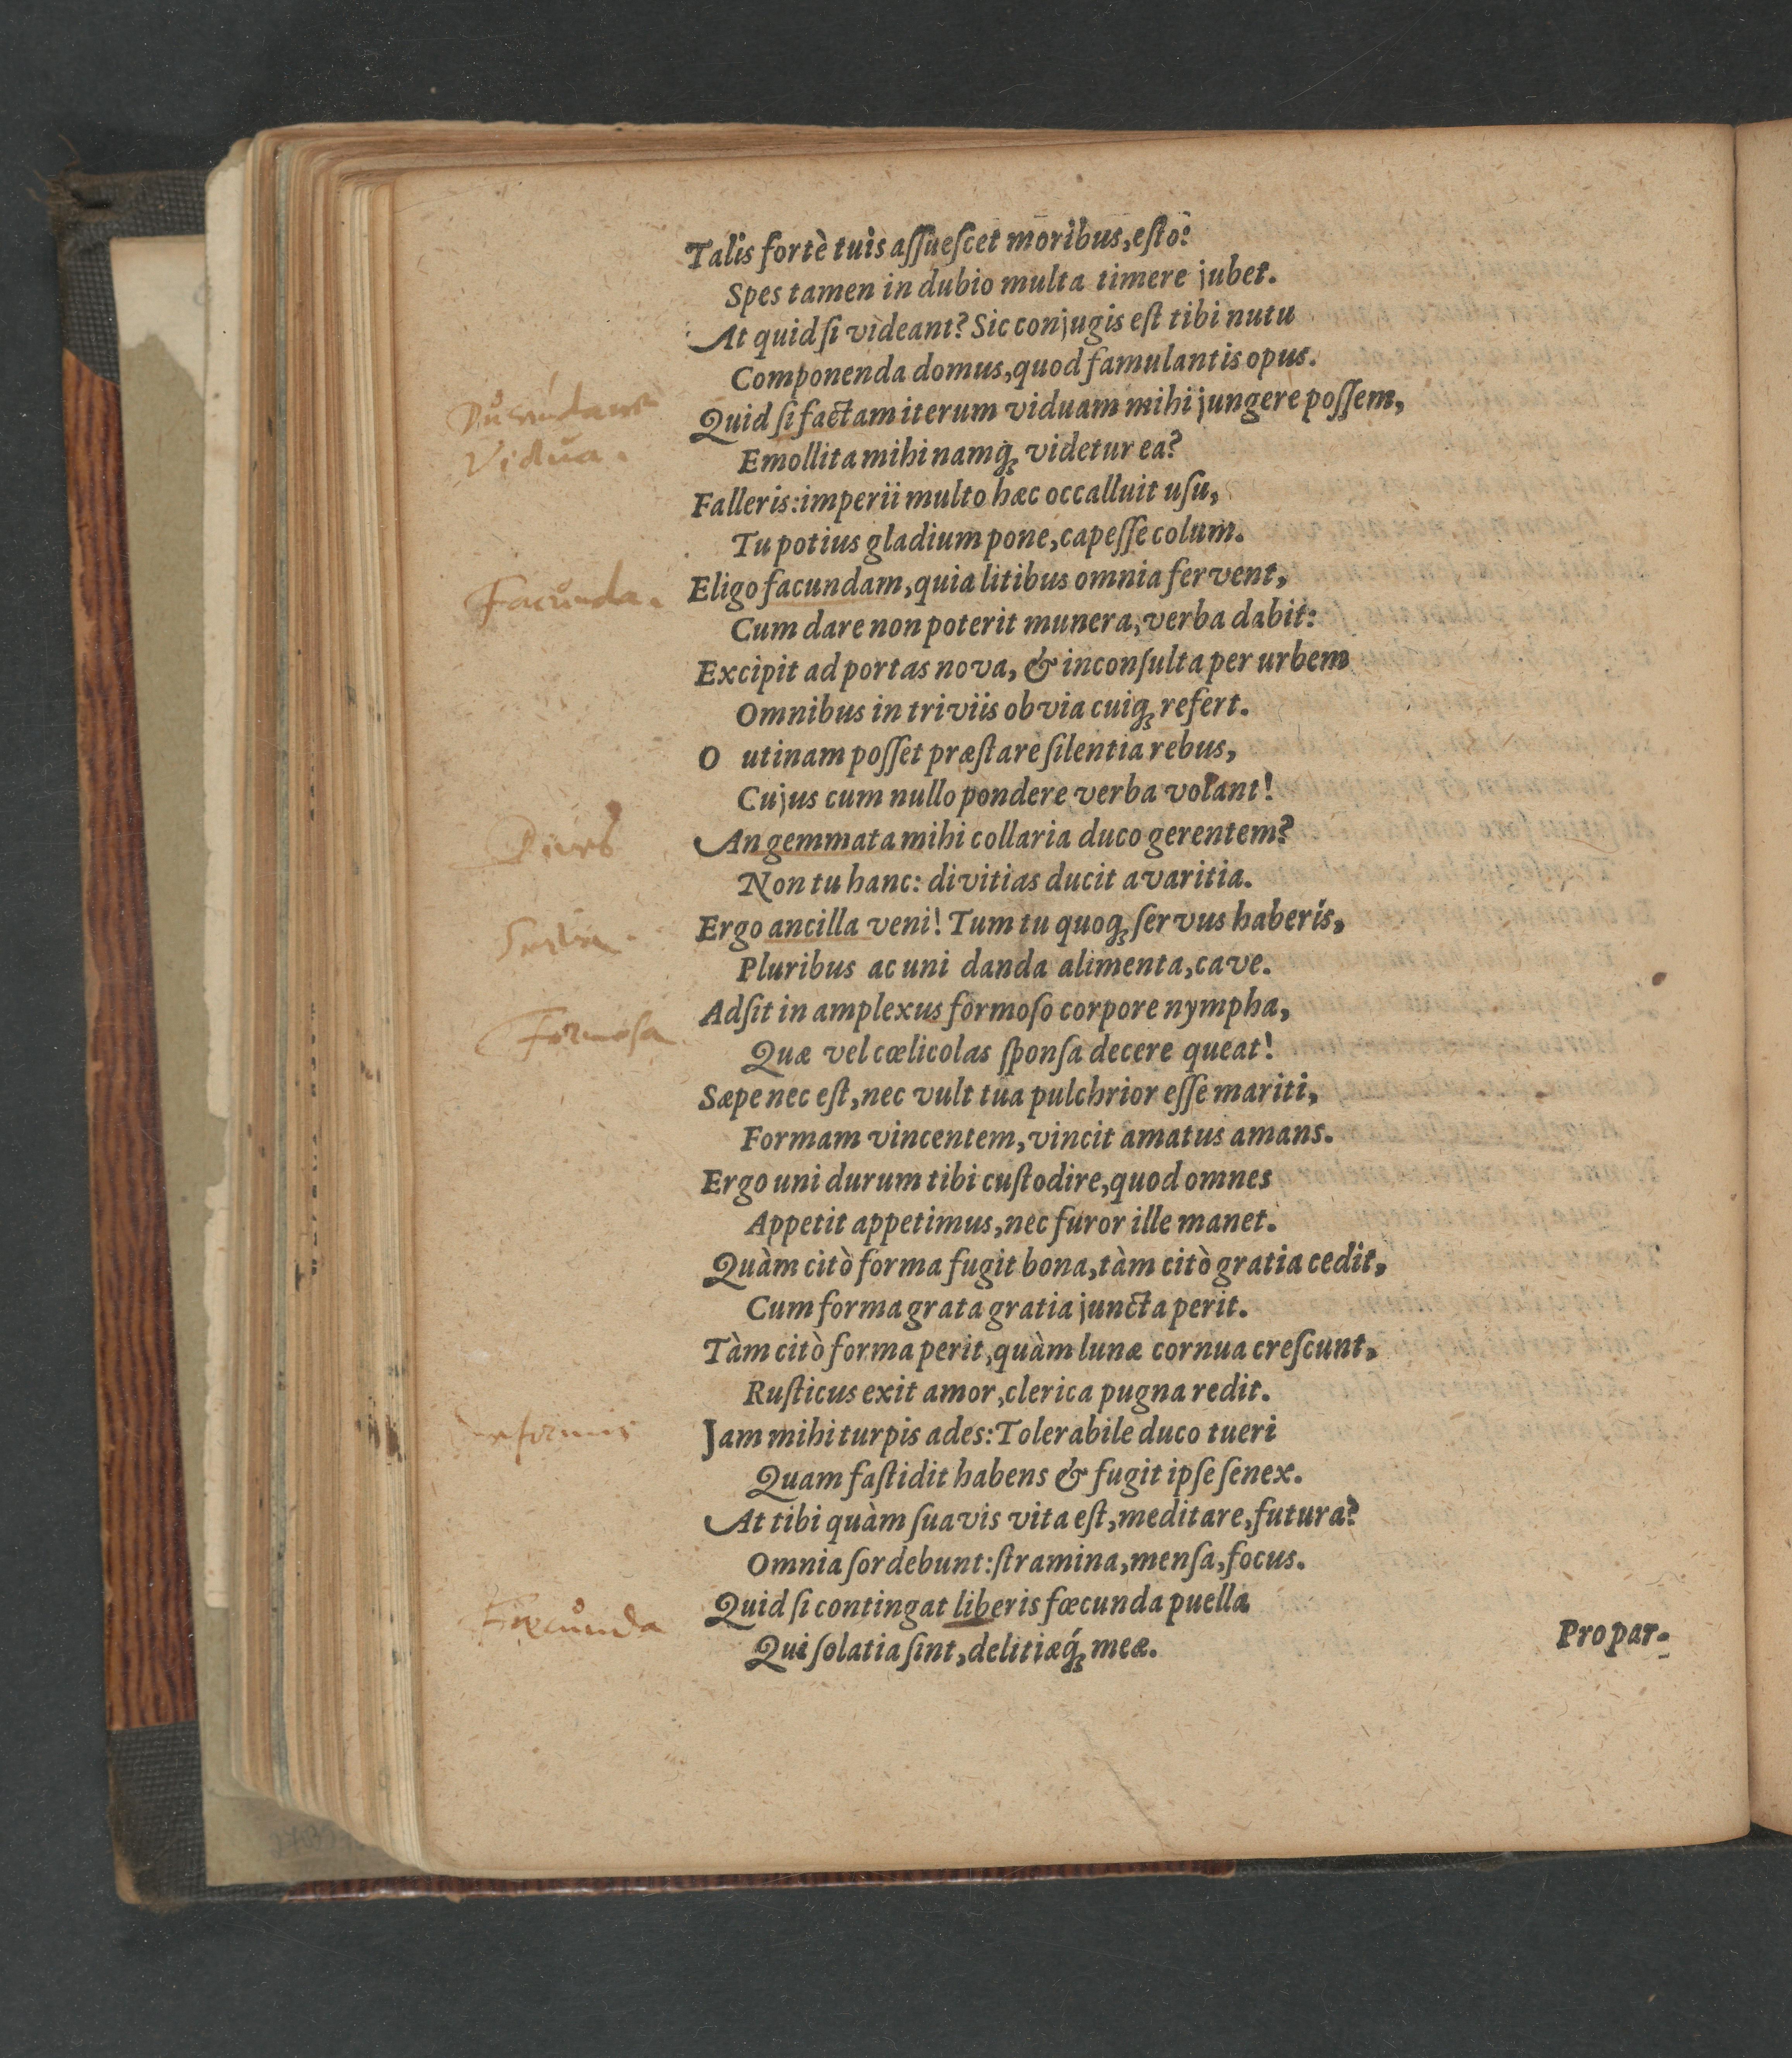 Talis fortè tuis aſſueſcet moribus, eſto:
Spes tamen in dubio multa timere jubet.
At quid ſi videant? Sic conjugis eſt tibi nutu
Componenda domus, quod famulantis opus.
Quid ſi factam iterum viduam mihi jungere poſſem,
Vidua.
Emollita mihi namq́ꝫ videtur ea?
Falleris: imperii multo hæc occalluit uſu,
Tu potius gladium pone, capeſſe colum.
Facunda.
Eligo facundam, quia litibus omnia fervent,
Cum dare non poterit munera, verba dabit:
Excipit ad portas nova, & inconſulta per urbem
Omnibus in triviis obvia cuiqꝫ refert.
O utinam poſſet præſtare ſilentia rebus,
Cujus cum nullo pondere verba volant!
An gemmata mihi collaria duco gerentem?
Non tu hanc: divitias ducit avaritia.
Ergo ancilla veni! Tum tu quoqꝫ ſervus haberis,
Pluribus ac uni danda alimenta, cave.
Formosa
Adſit in amplexus formoſo corpore nympha,
Quæ vel cœlicolas ſponſa decere queat!
Sæpe nec eſt, nec vult tua pulchrior eſſe mariti,
Formam vincentem, vincit amatus amans.
Ergo uni durum tibi cuſtodire, quod omnes
Appetit appetimus, nec furor ille manet.
Quàm citò forma fugit bona, tàm citò gratia cedit,
Cum forma grata gratia juncta perit.
Tàm citò forma perit, quàm lunæ cornua creſcunt,
Ruſticus exit amor, clerica pugna redit.
Jam mihi turpis ades: Tolerabile duco tueri
Quam faſtidit habens & fugit ipſe ſenex.
At tibi quàm ſuavis vita eſt, meditare, futura?
Omnia ſordebunt: ſtramina, menſa, focus.
Fœcunda
Quid ſi contingat liberis fœcunda puella
Qui ſolatia ſint, delitiæq́ꝫ meæ.
Propar-